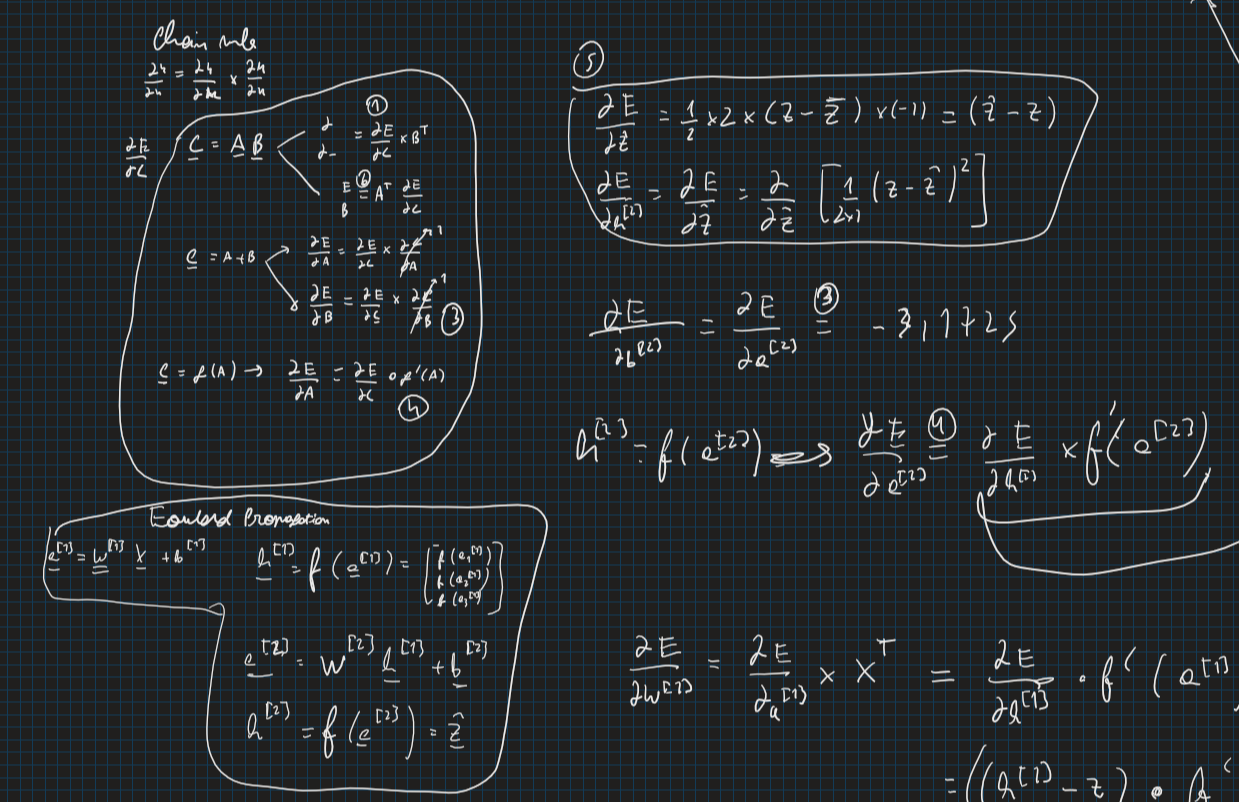 Chain rule
∂E/∂C
C = A B
①
= ∂E/∂C × Bᵀ
② = Aᵀ ∂E/∂C
C = A + B → ∂E/∂A = ∂E/∂C × ∂C/∂A ↗ 1
∂E/∂B = ∂E/∂C × ∂C/∂B ↗ 1 ③
C = f(A) → ∂E/∂A = ∂E/∂C ∘ f'(A)
④
Forward Propagation
a[1] = W[1] X + b[1]
h[1] = f(a[1]) = [f(a₁[1]) f(a₂[1]) f(a₃[1])]
a[2] = W[2] h[1] + b[2]
h[2] = f(a[2]) = ẑ
⑤
∂E/∂ẑ = 1/2 × 2 × (z - ẑ) × (-1) = (ẑ - z)
∂E/∂h[2] = ∂E/∂ẑ = ∂/∂ẑ [1/2×1 (z - ẑ)²]
∂E/∂b[2] = ∂E/∂a[2] ③ = -3,1725
h[2] = f(a[2]) → ∂E/∂a[2] ④ = ∂E/∂h[2] × f'(a[2])
∂E/∂W[1] = ∂E/∂a[1] × Xᵀ = ∂E/∂h[1] · f'(a[1]
= ((h[1] - z) ∘